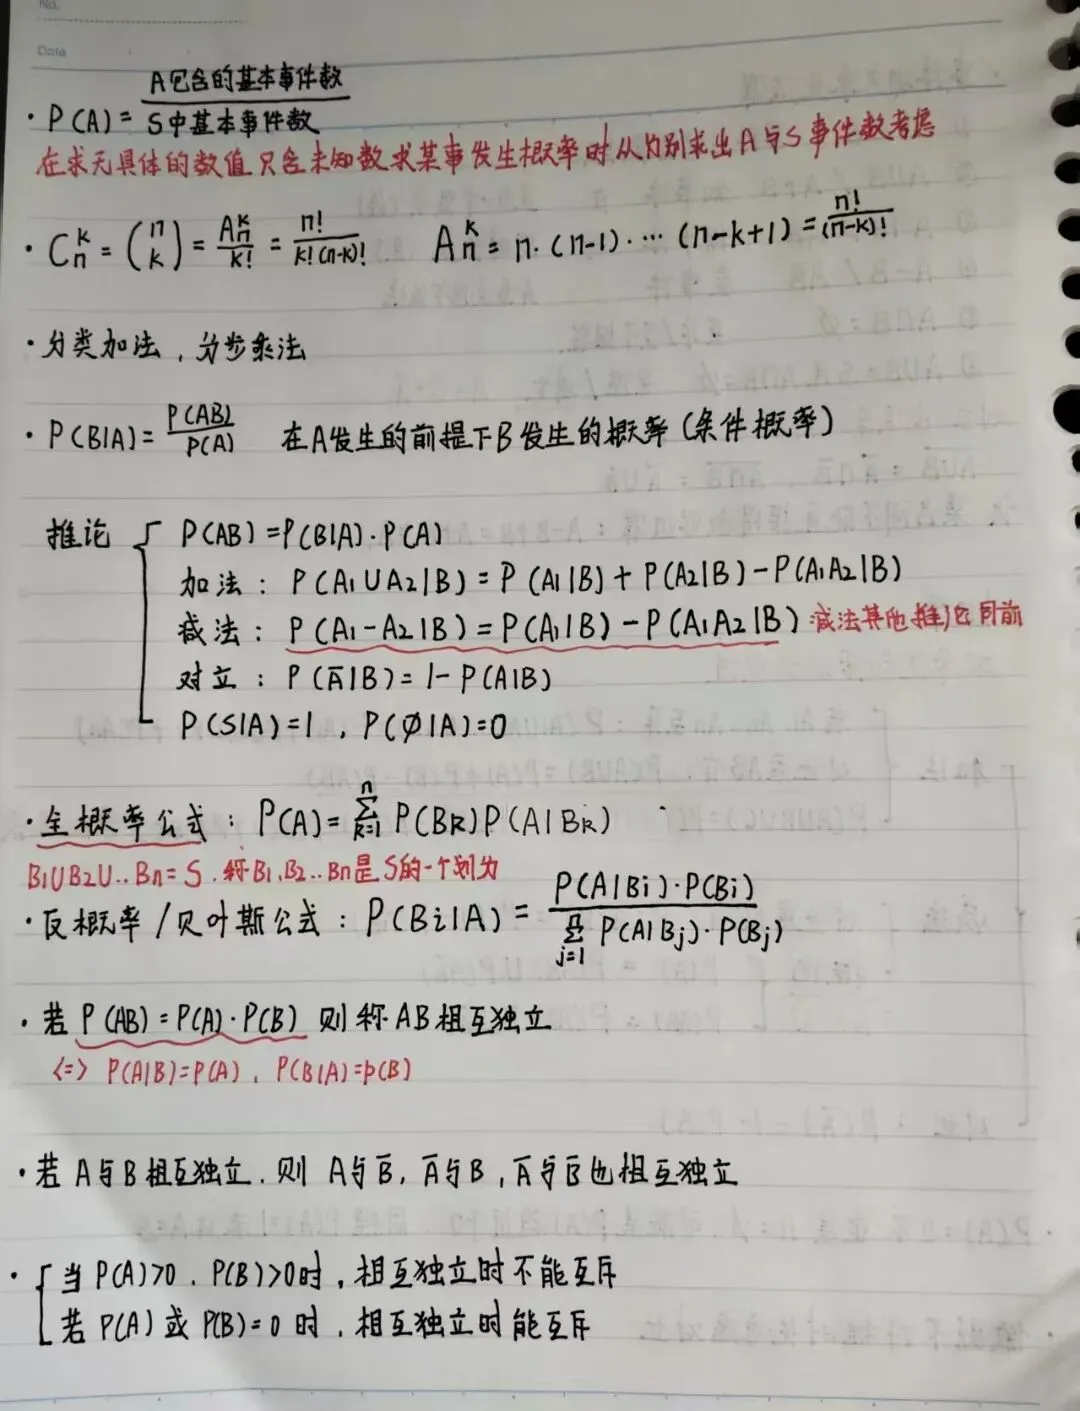 No.
Date
· P(A) = A包含的基本事件数 / S中基本事件数
在求无具体的数值只含未知数求某事发生概率时从分别求出A与S事件数考虑
· C_n^k = (n k) = A_n^k / k! = n! / k!(n-k)!  A_n^k = n·(n-1)·…(n-k+1) = n! / (n-k)!
· 分类加法，分步乘法
· P(B|A) = P(AB) / P(A) 在A发生的前提下B发生的概率（条件概率）
推论 { P(AB) = P(B|A)·P(A)
加法： P(A₁∪A₂|B) = P(A₁|B) + P(A₂|B) - P(A₁A₂|B)
减法： P(A₁-A₂|B) = P(A₁|B) - P(A₁A₂|B) 减法其他推论同前
对立： P(A̅|B) = 1- P(A|B)
P(S|A) = 1，P(∅|A) = 0
· 全概率公式： P(A) = ∑_{k=1}^{n} P(B_k)P(A|B_k)
B₁∪B₂∪..Bn = S，称B₁,B₂..Bn是S的一个划分
· 反概率/贝叶斯公式： P(Bi|A) = P(A|Bi)·P(Bi) / ∑_{j=1}^{n} P(A|Bj)·P(Bj)
· 若 P(AB) = P(A)·P(B) 则称AB相互独立
<=> P(A|B)=P(A)，P(B|A)=P(B)
· 若A与B相互独立，则 A与B̅，A̅与B，A̅与B̅也相互独立
· { 当P(A)>0，P(B)>0时，相互独立时不能互斥
若P(A)或P(B)=0时，相互独立时能互斥